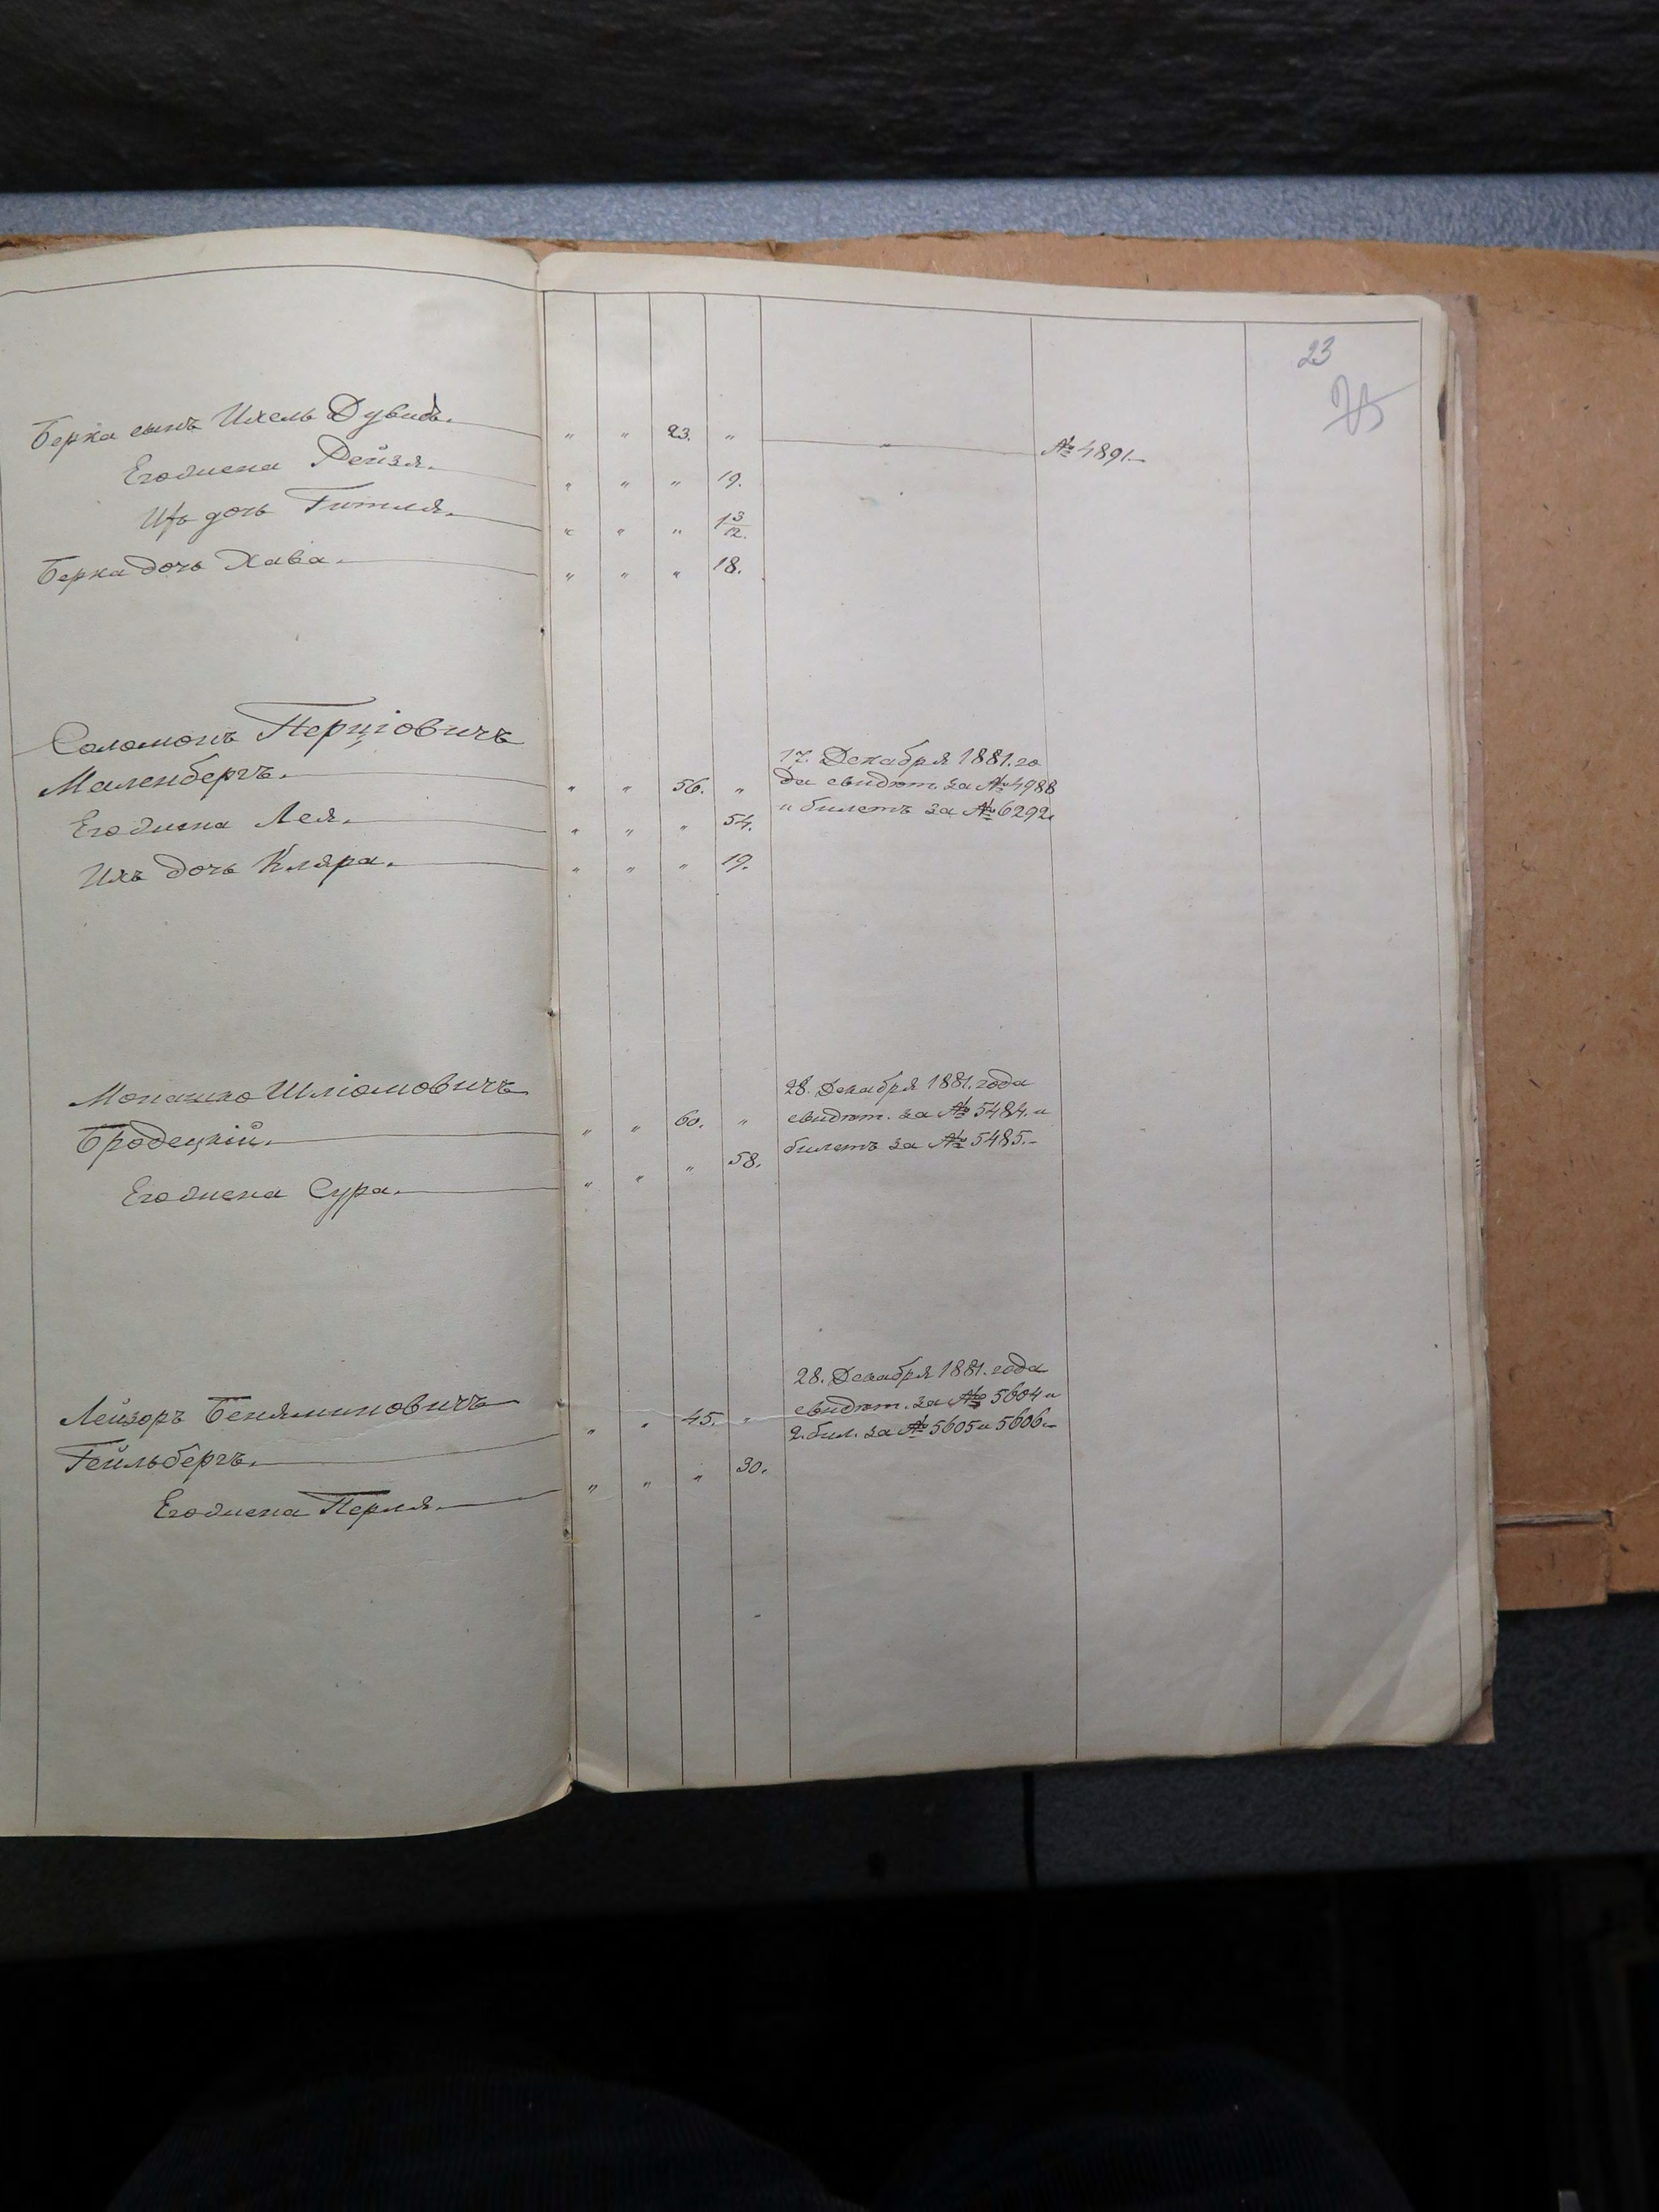 23
Берка сынъ Ихель Дувидъ. " " 23. " " № 4891
Его жена Рейзя. " " " 19.
Ихъ дочь Гитля. " " " 1 3/12.
Берка дочь Хава. " " " 18.
Соломонъ Перціовичъ
17. Декабря 1881. го
Маленбергъ. " " 56. "
да свидѣт. за № 4988
Его жена Лея. " " " 54.
и билетъ за № 6292
Ихъ дочь Кляра. " " " 19.
Монашко Шліомовичъ
28. Декабря 1881. года
Бродецкій. " " 60. "
свидѣт. за № 5484. и
билетъ за № 5485.
Его жена Сура. " " " 58.
28. Декабря 1881. года
Лейзоръ Беняминовичъ
свидѣт. за № 5604 и
Гейльбергъ. " " 45. "
2. бил. за № 5605 и 5606.
Его жена Перля. " " " 30.